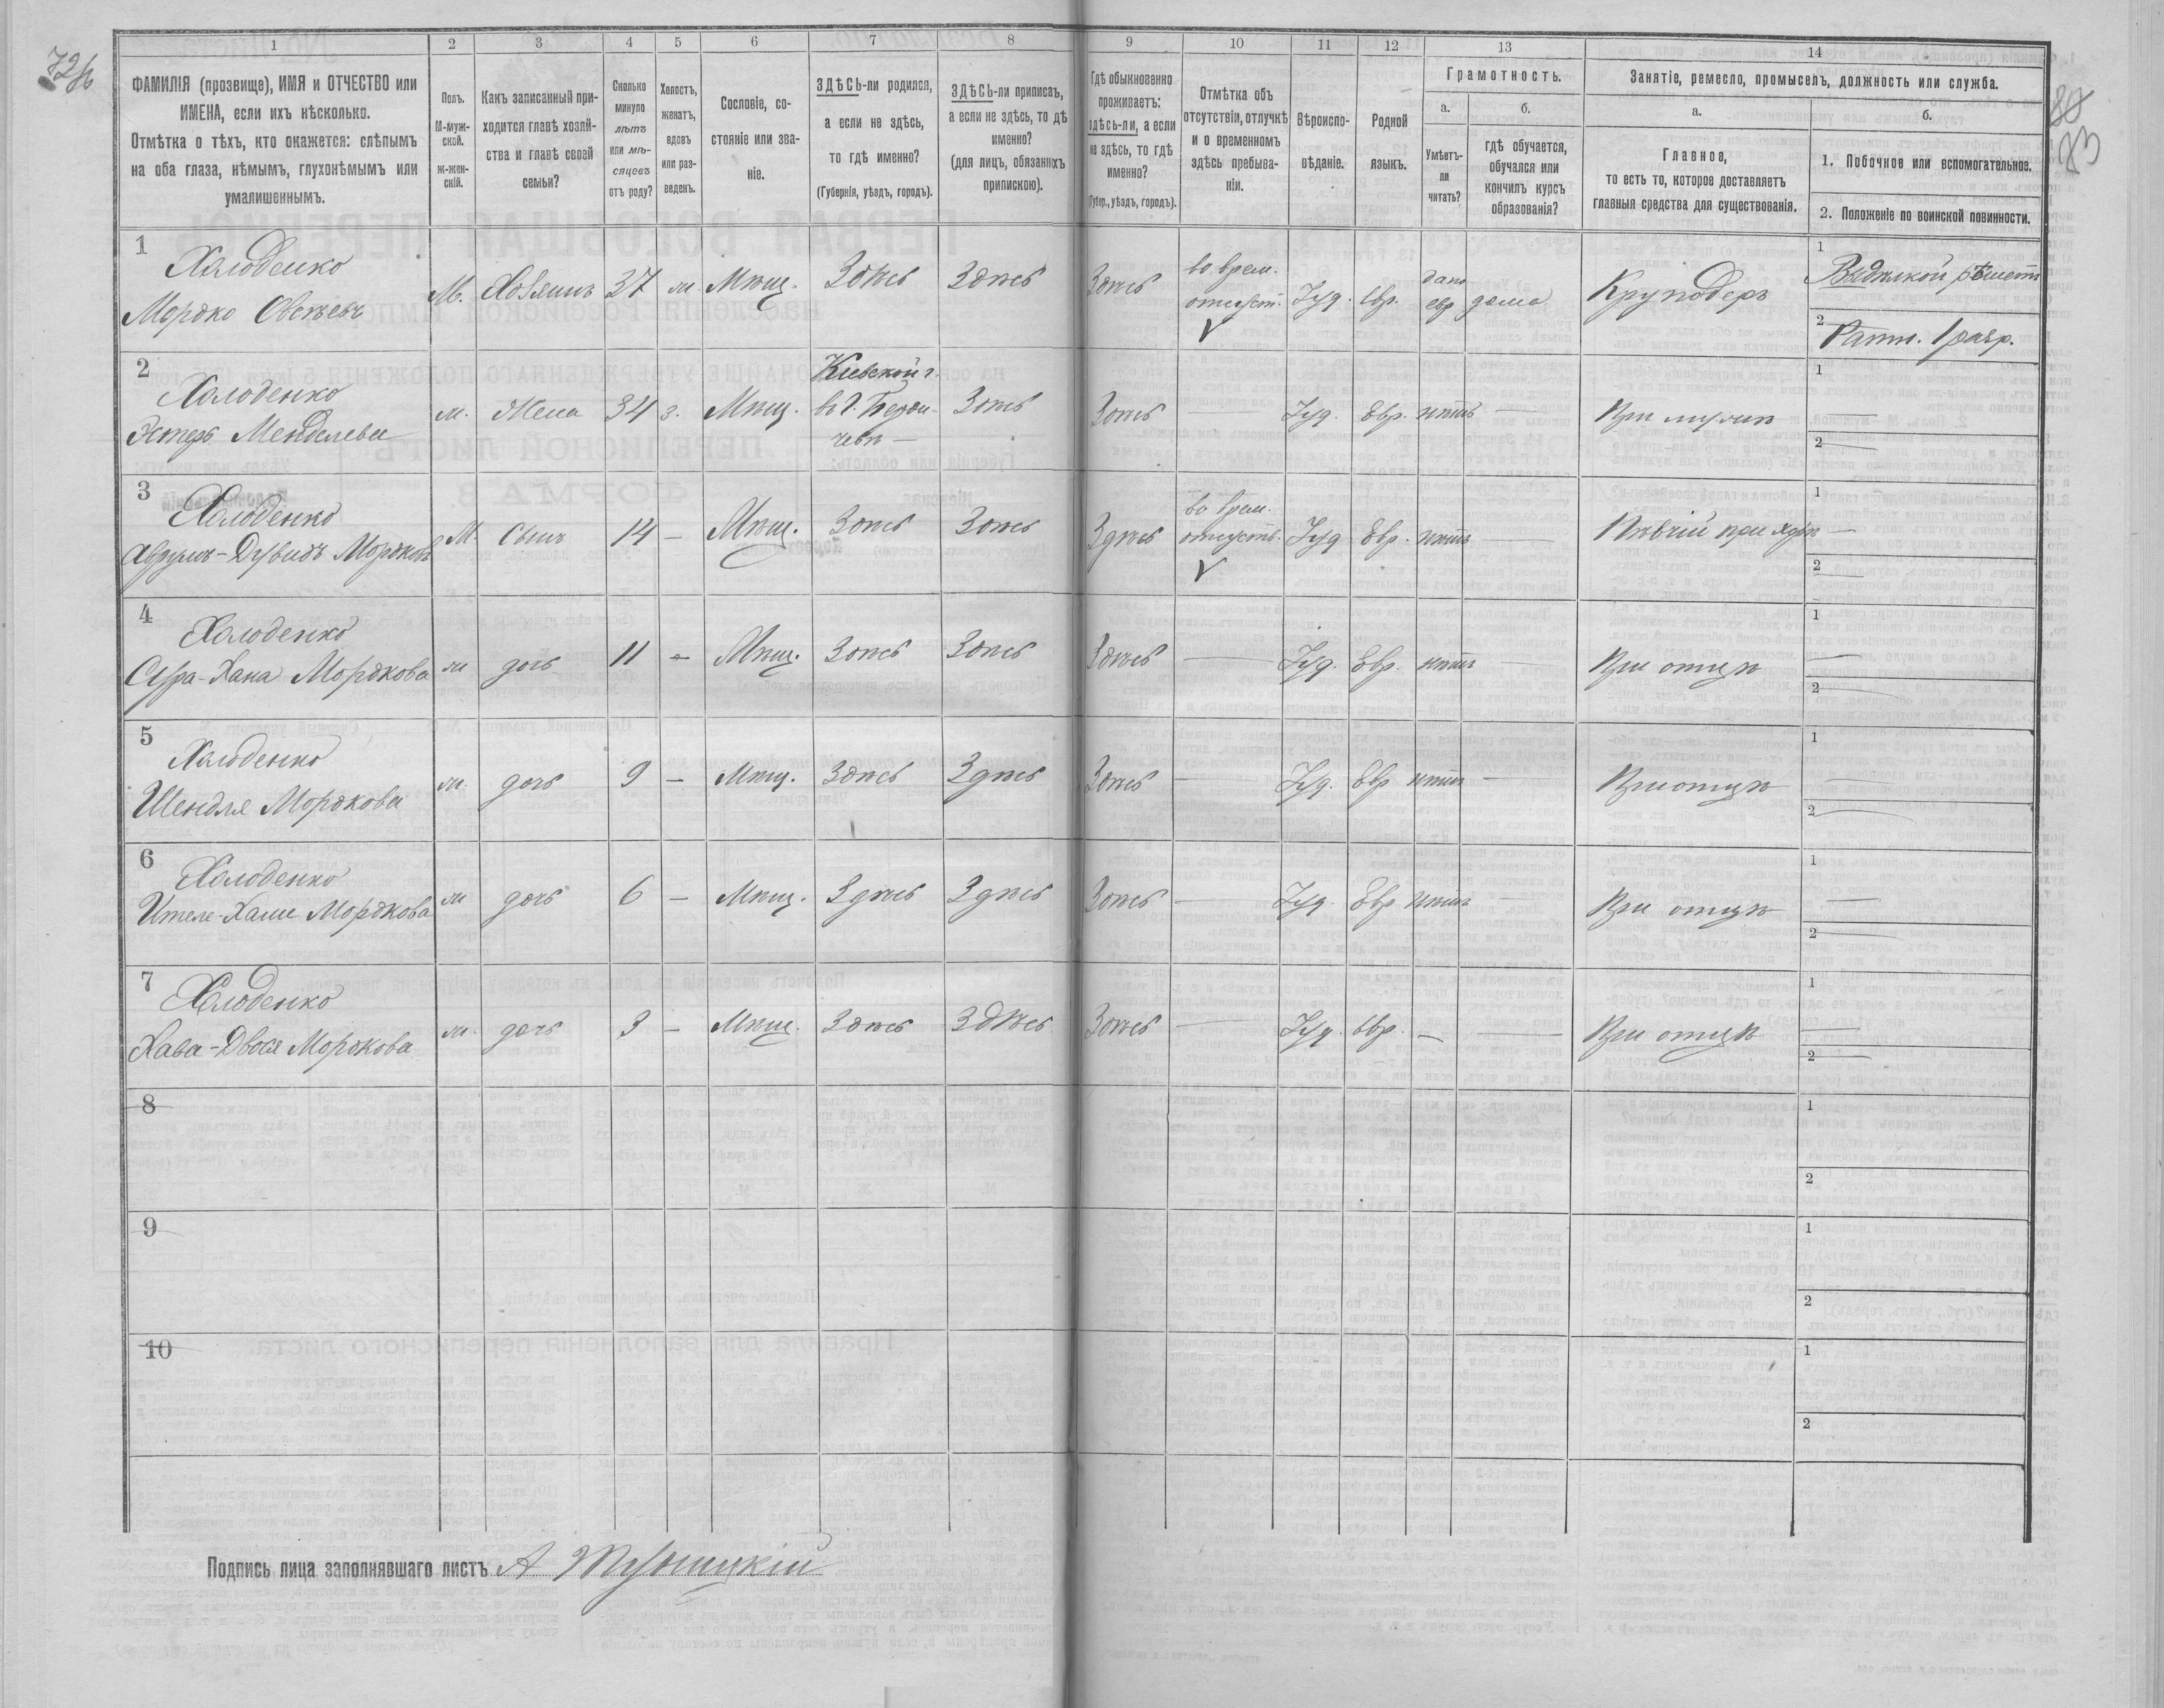 72 
1 2 3 4 5 6 7 8 9 10 11 12 13 14
ФАМИЛІЯ (прозвище), ИМЯ и ОТЧЕСТВО или
ИМЕНА, если ихъ нѣсколько.
Отмѣтка о тѣхъ, кто окажется: слѣпымъ
на оба глаза, нѣмымъ, глухонѣмымъ или
умалишеннымъ.
Полъ.
М-муж-
ской.
ж-жен-
скій.
Какъ записанный при-
ходится главѣ хозяй-
ства и главѣ своей
семьи?
Сколько
минуло
лѣтъ
или мѣ-
сяцевъ
отъ роду?
Холостъ,
женатъ,
вдовъ
или раз-
веденъ.
Сословіе, со-
стояніе или зва-
ніе.
ЗДѢСЬ-ли родился,
а если не здѣсь,
то гдѣ именно?
(Губернія, уѣздъ, городъ).
ЗДѢСЬ-ли приписанъ,
а если не здѣсь, то гдѣ
именно?
(для лицъ, обязанныхъ
припискою).
Гдѣ обыкновенно
проживаетъ:
здѣсь-ли, а если
не здѣсь, то гдѣ
именно?
(Губер., уѣздъ, городъ).
Отмѣтка объ
отсутствіи, отлучкѣ
и о временномъ
здѣсь пребыва-
ніи.
Вѣроиспо-
вѣданіе.
Родной
языкъ.
Грамотность.
а.
Умѣетъ-
ли
читать?
б.
гдѣ обучается,
обучался или
кончилъ курсъ
образованія?
Занятіе, ремесло, промыселъ, должность или служба.
а.
Главное,
то есть то, которое доставляетъ
главныя средства для существованія.
б.
1. Побочное или вспомогательное.
2. Положеніе по воинской повинности.
80
83
1 Халоденко
Мордко М. Хозяинъ 37 Мѣщ. Здѣсь Здѣсь Здѣсь во врем. Іуд. Евр. евр дома Круподеръ
1
2 Ратн. 1 разр.
2 Халоденко
Эстеръ Менделева Жена 34 з. Мѣщ. Кіевской г.
в г. Берди-
чевѣ — Здѣсь Здѣсь — Іуд. Евр. нѣтъ — При мужѣ
1 —
2 —
3 Халоденко
Аврумъ-Дувидъ М. Сынъ 14 — Мѣщ. Здѣсь Здѣсь Здѣсь во врем. Іуд Евр. нѣтъ — Пѣвчій при
1 —
2 —
4 Халоденко
Сура-Хана Мордкова дочь 11 - Мѣщ. Здѣсь Здѣсь Здѣсь — Іуд. Евр. нѣтъ — При отцѣ
1 —
2 —
5 Халоденко
Шендля Мордкова дочь 9 — Мѣщ. Здѣсь Здѣсь Здѣсь — Іуд. Евр нѣтъ — При отцѣ
1 —
2 —
6 Халоденко
Мордкова дочь 6 — Мѣщ. Здѣсь Здѣсь Здѣсь — Іуд. Евр нѣтъ — При отцѣ
1 —
2 —
7 Халоденко
Хава-Двося Мордкова дочь 3 — Мѣщ. Здѣсь Здѣсь Здѣсь — Іуд. Евр. — — При отцѣ
1 —
2 —
8
1
2
9
1
2
10
1
2
Подпись лица заполнявшаго листъ А